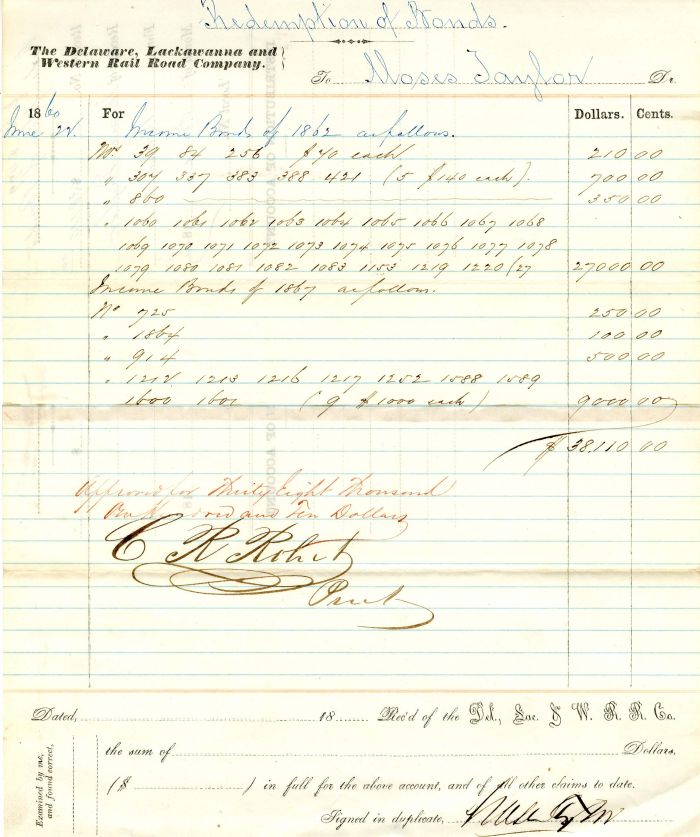 Redemption of Bonds.
The Delaware, Lackawanna and
Western Rail Road Company.
To Moses Taylor Dr.
1860 For Dollars. Cents.
June 22. Income Bonds of 1862 as follows.
Nos 39 84 256 $70 each 210 00
" 307 337 383 388 421 (5 $140 each). 700 00
" 860 350 00
" 1060 1061 1062 1063 1064 1065 1066 1067 1068
1069 1070 1071 1072 1073 1074 1075 1076 1077 1078
1079 1080 1081 1082 1083 1153 1219 1220 (27 27000 00
Income Bonds of 1867 as follows.
No 725 250 00
" 1864 100 00
" 914 500 00
" 1212 1213 1216 1217 1252 1588 1589
1600 1601 (9 $1000 each) 9000 00
$ 38,110 00
Approved for Thirty Eight Thousand
One Hundred and Ten Dollars
C R Robert
Prest
Dated, 18 Rec'd of the Del., Lac. & W. R. R. Co.
the sum of Dollars,
($ ) in full for the above account, and of all other claims to date.
Signed in duplicate,
Examined by me,
and found correct,